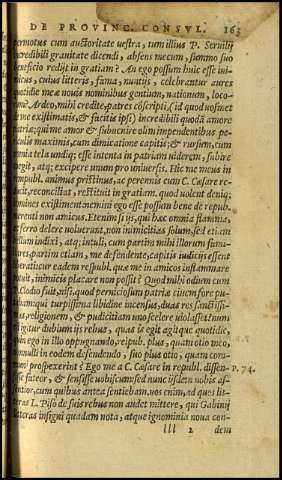 DE PROVINC. CONSVL. 163
permotus cum auctoritate uestra, tum illius P. Seruilij
incredibili grauitate dicendi, absens mecum, summo suo
beneficio redijt in gratiam? An ego possum huic esse ini-
micus, cuius litteris, fama, nuntijs, celebrantur aures
quotidie meæ nouis nominibus gentium, nationum, loco-
rum? Ardeo, mihi credite, patres cōscripti, (id quod uosmet
de me existimatis, & facitis ipsi) incredibili quodā amore
patriæ; qui me amor & subuenire olim impendentibus pe-
riculis maximis, cum dimicatione capitis; & rursum, cum
omnia tela undiq; esse intenta in patriam uiderem, subire
coegit, atq; excipere unum pro uniuersis. Hic me meus in
rempubl. animus pristinus, ac perennis cum C. Cæsare re-
ducit, reconciliat, restituit in gratiam. quod uolent deniq;
homines existiment: nemini ego esse possum bene de republ.
merenti non amicus. Etenim si ijs, qui hæc omnia flamma,
ac ferro delere uoluerunt, non inimicitias solum, sed etiam
bellum indixi, atq; intuli, cum partim mihi illorum famili-
ares, partim etiam, me defendente, capitis iudicijs essent
liberati: cur eadem respubl. quæ me in amicos inflammare
potuit, inimicis placare non possit? Quod mihi odium cum
P. Clodio fuit, nisi, quod perniciosum patriæ ciuem fore pu-
tabam, qui turpissima libidine incensus, duas res sanctissi-
mas, religionem, & pudicitiam uno scelere uiolasset? Num
igitur dubium ijs rebus, quas is egit agitque quotidie,
quin ego in illo oppugnando, reipub. plus, quam otio meo,
nonnulli in eodem defendendo, suo plus otio, quam com-
muni prospexerint? Ego me a C. Cæsare in republ. dissen- P. 74.
sisse fateor, & sensisse uobiscum: sed nunc ijsdem uobis as-
sentior, cum quibus antea sentiebam. uos enim, ad quos lit-
teras L. Piso de suis rebus non audet mittere, qui Gabinij
litteras insigni quadam nota, atque ignominia noua con-
lll 2 dem